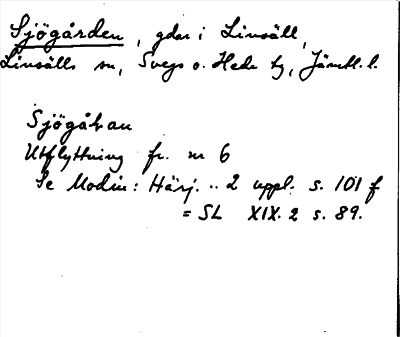 Sjögården, gdar i Linsäll,
Linsälls sn, Svegs o. Hede tg, Jämtl. l.
Sjögå'ɽan
Utflyttning fr. nr 6
Se Modin: Härj. .. 2 uppl. s. 101 f
= SL XIX. 2 s. 89.